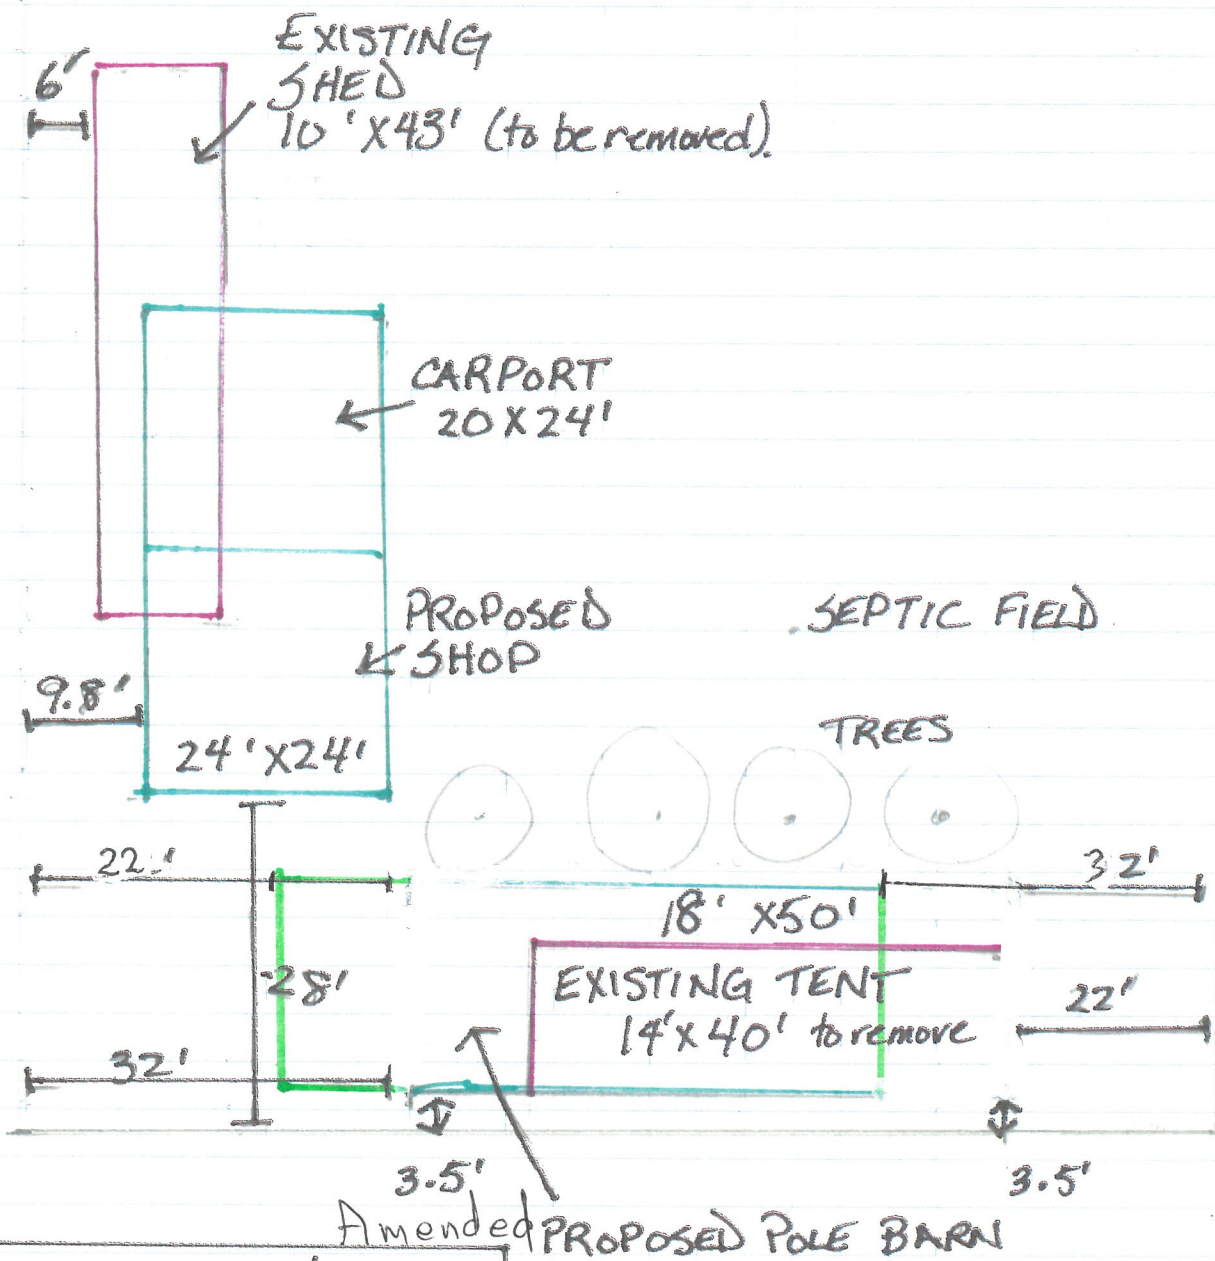 EXISTING
6'
SHED
10'X43' (to be removed).
CARPORT
20X24'
PROPOSED
SHOP
SEPTIC FIELD
9.8'
24'X24'
TREES
22'
32'
18' X50'
28'
EXISTING TENT
14'X40' to remove
22'
32'
3.5'
3.5'
Amended PROPOSED POLE BARN